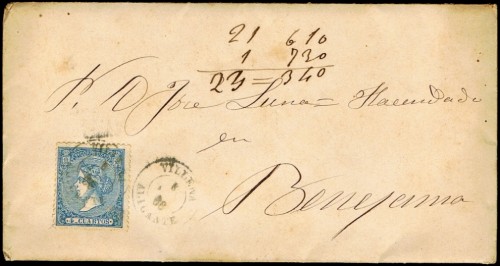 21 610
1 730
23 = 340
S. D. José Luna = Hacendado
en
Benejama
VILLENA
ALICANTE
4 CUARTOS